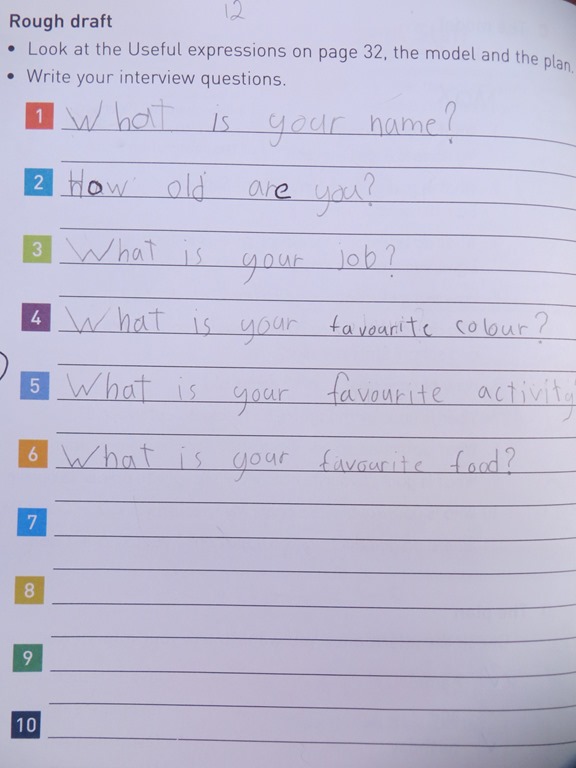 12
Rough draft
• Look at the Useful expressions on page 32, the model and the plan.
• Write your interview questions.
1 What is your name?
2 How old are you?
3 What is your job?
4 What is your favourite colour?
5 What is your favourite activity
6 What is your favourite food?
7
8
9
10